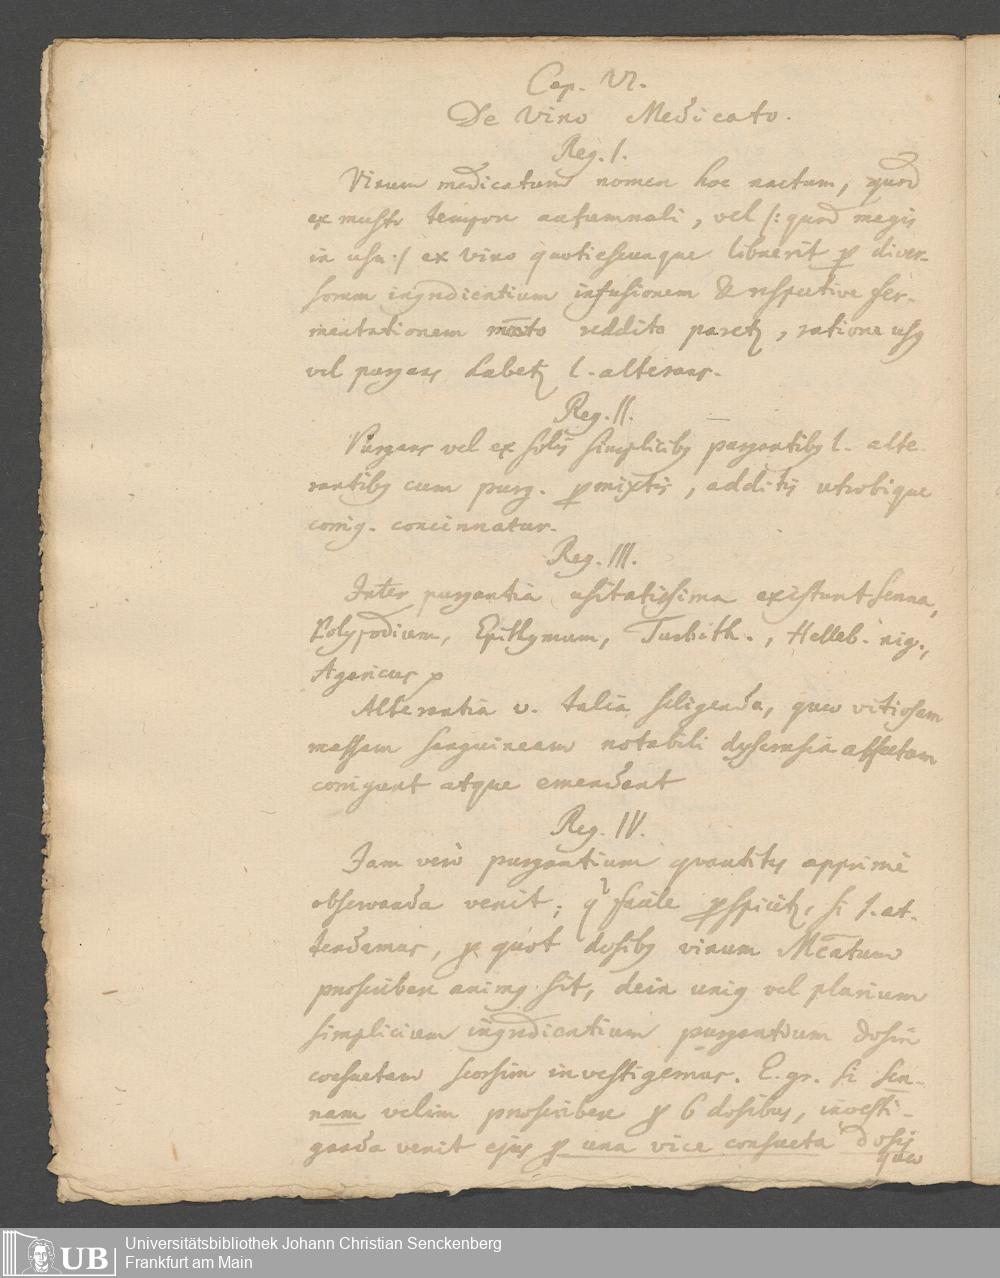 Cap. VI.
De Vino Medicato.
Reg. I.
Vinum medicatum nomen hoc nactum, quod
ex musto tempore autumnali, vel /: quod magis
in usu :/ ex vino quotiescunque libuerit p diver-
sorum ingredientium infusionem & respective fer-
mentationem reddito paretz, ratione usq
vel purgans habetz l. alterans.
Reg. II.
Purgans vel ex solis simplicibq purgantibq l. alte
rantibq cum purg. pmixtis, additis utrobique
corrig. concinnatur.
Reg. III.
Inter purgantia usitatissima existunt Senna,
Polypodium, Epithymum, Turbith., Helleb. nig.,
Agaricus p
Alterantia v. talia seligenda, quæ vitiosam
massam sanguineam notabili dyscrasia affectam
corrigant atque emendent
Reg. IV.
Jam verò purgantium quantitas apprimè
observanda venit; q facile pspicitz, si s. at-
tendamus, p quot dosibq vinum Mcatum
præscribere animq sit, dein uniq vel plurium
simplicium ingredientium purgantium dosin
consuetam seorsim investigemus. E. gr. si sen-
nam velim præscribere p 6 dosibus, investi-
ganda venit ejus p una vice consueta dosis
quæ
UB Universitätsbibliothek Johann Christian Senckenberg
Frankfurt am Main